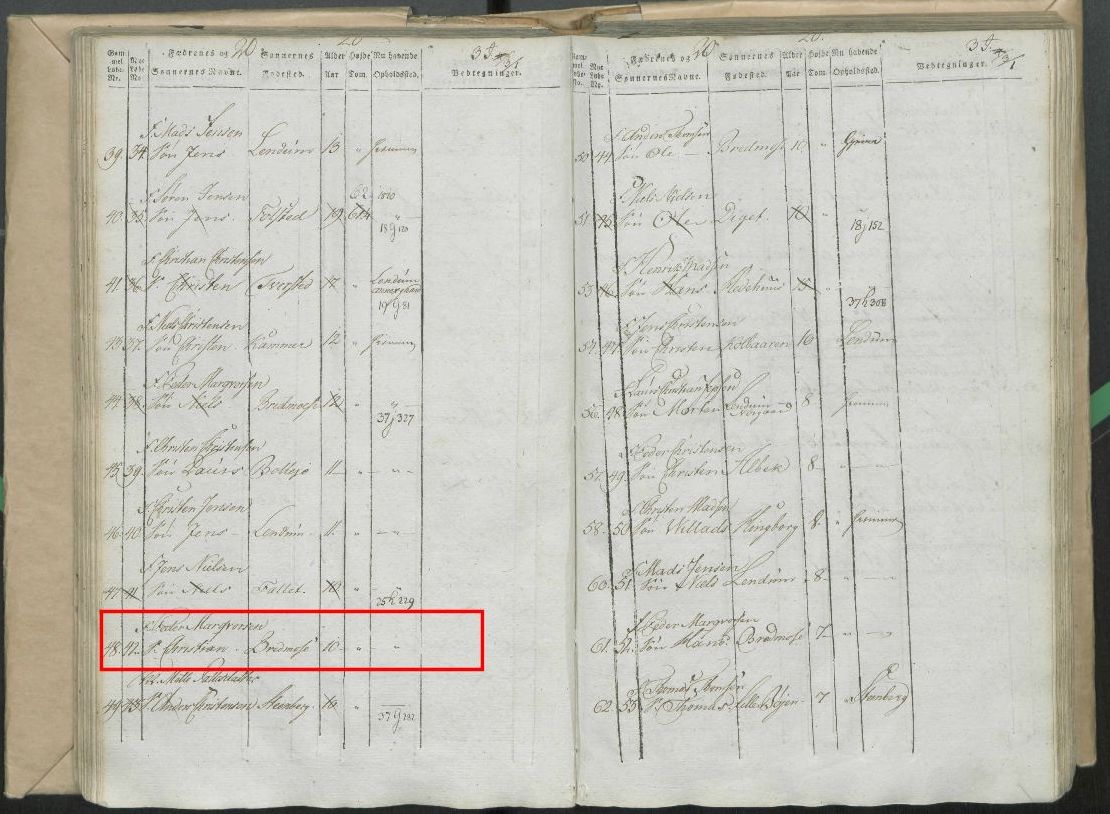 20 20 3 J
Gammel Løbe-Nr. Nye Løbe Nr. Fædrenes og Sønnernes Navne. Sønnernes Fødested. Alder Aar Højde Tom. Nu havende Opholdssted. Bedtegninger.
F. Mads Jensen
39. 34. Søn Jens Lendum 13 "
F. Søren Jensen 62
40. 35. Søn Jens Tolsted 19 "
18 g 120
F. Christian Christensen
41. 36. S. Christen Tversted 17 " Lendum
19 g 81
F. Niels Christensen
43. 37. Søn Christen Kammer 12 "
F. Peder Margrorsen
44. 38. Søn Niels Bredmose 12 "
37 g 327
F. Christen Christensen
45. 39. Søn Laurs 11 " "
F. Christen Jensen
46. 40. Søn Jens Lendum 11 " "
F. Jens Nielsen
47. 41. Søn Niels Faltet 10 "
25 k 229
F. Peder Margrorsen
48. 42. S. Christian Bredmose 10 " "
49. 43. S. Anders Christensen Steenberg 10 "
37 g 282
20 20. 3 J
Gammel Løbe-No. Nye Løbe Nr. Fædrenes og Sønnernes Navne. Sønnernes Fødested. Alder Aar Højde Tom. Nu havende Opholdssted. Bedtegninger.
F. Anders Thomsen
50 44 Søn Ole Bredmose 10 "
F. Niels Nielsen
51. 45 Søn Ole Diget 10 "
18 g 152
F. Henrik Madsen
53. 46. Søn Jens Rodehuus 15 "
37 k 308
F. Jens Christensen
54. 47. Søn Christen Kolbaaren 10 " Lendum
56. 48. Søn Morten Lendum 8 "
F. Peder Christensen
57. 49. Søn Christen Albek 8 " "
F. Christen Madsen
58. 50 Søn Willads Klingborg 8 "
F. Mads Jensen
60. 51. Søn Niels Lendum 8 " "
F. Peder Margrorsen
61. 52. Søn Hans Bredmose 7 " "
F. Thomas Thomsen
62. 53. S. Thomas 7 " Steenberg